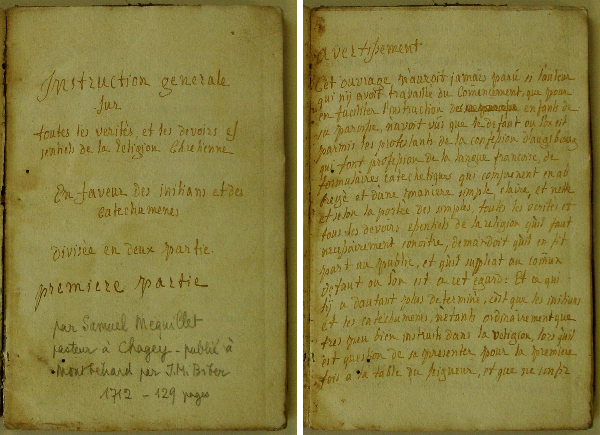 Instruction generale
sur
toutes les verités, et les devoirs es
sentiels de la Religion Chretienne
En faveur des initians et des
Catechumenes
divisée en deux partie.
premiere partie
par Samuel Mequillet
pasteur à Chagey - publié à
Montbéliard par J.M. Biber
1712 - 129 pages
avertissement
Cet ouvrage n'auroit jamais parû si l'auteur
qui n'y avoit travaillé du Comancement, que pour
en faciliter l'instruction des enfans de
sa paroisse, n'avoit vûs que le defaut ou l'on est
parmis les protestants de la confession d'augsbourg
qui font profession de la langue françoise, de
formulaires catechetiques qui comprenent en ab
regé et d'une maniere simple, claire, et nette
et selon la portée des simples, toutes les verités et
tous les devoirs essentiels de la religion qu'il faut
necessairement conoitre, demandoit qu'il en fit
part au public, et qu'il suppleat au comun
defaut ou l'on est a cet egard: Et ce qui
l'y a dautant plus determiné, c'est que les initians
et les catechumenes n'etants ordinairement que
tres peu bien instruits dans la religion, lors qu'il
est question de se presenter pour la premiere
fois a la table du seigneur, et que ne